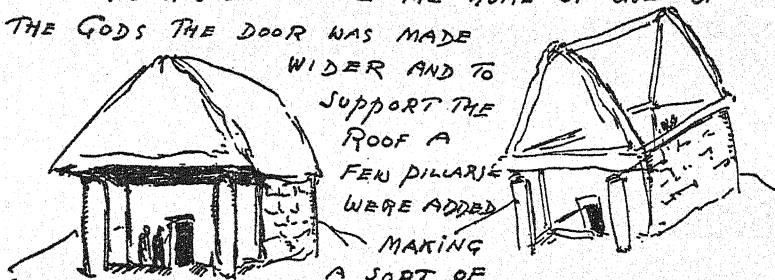 THE HOME OF ONE OF
THE GODS THE DOOR WAS MADE
WIDER AND TO
SUPPORT THE
ROOF A
FEW PILLARS
WERE ADDED
MAKING
A SORT OF